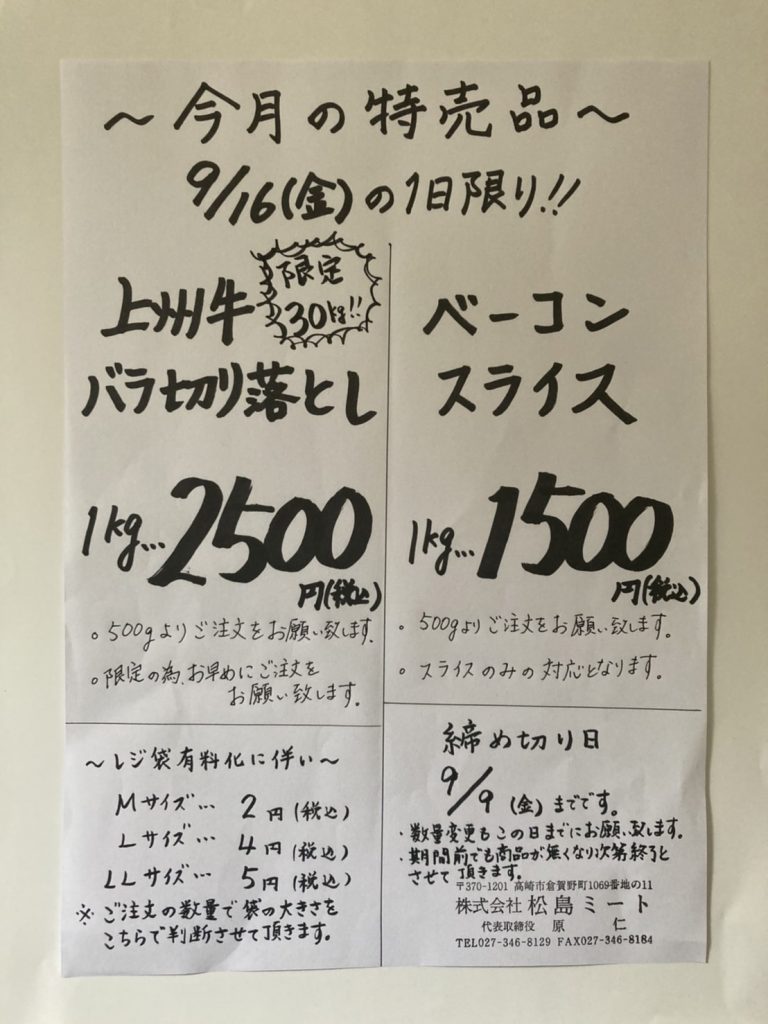 ～今月の特売品～
9/16(金)の1日限り!!
上州牛
限定
30kg!!
バラ切り落とし
1kg…2500
円(税込)
。500gよりご注文をお願い致します。
。限定の為、お早めにご注文を
お願い致します。
ベーコン
スライス
1kg…1500
円(税込)
・500gよりご注文をお願い致します。
・スライスのみの対応となります。
～レジ袋有料化に伴い～
Mサイズ… 2円(税込)
Lサイズ… 4円(税込)
LLサイズ… 5円(税込)
※ご注文の数量で袋の大きさを
こちらで判断させて頂きます。
締め切り日
9/9(金)までです。
・数量変更もこの日までにお願い致します。
・期間前でも商品が無くなり次第終了と
させて頂きます。
〒370-1201 高崎市倉賀野町1069番地の11
株式会社 松島ミート
代表取締役 原 仁
TEL027-346-8129 FAX027-346-8184